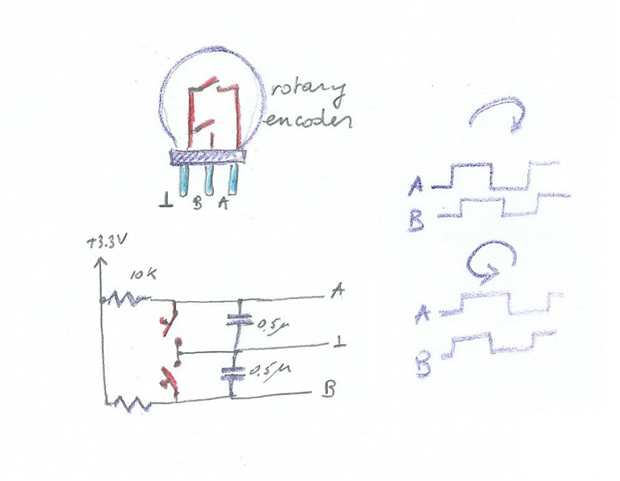 rotary
encoder
⊥ B A
A
B
+3.3V
10K
A
0.5μ
⊥
0.5μ
B
A
B